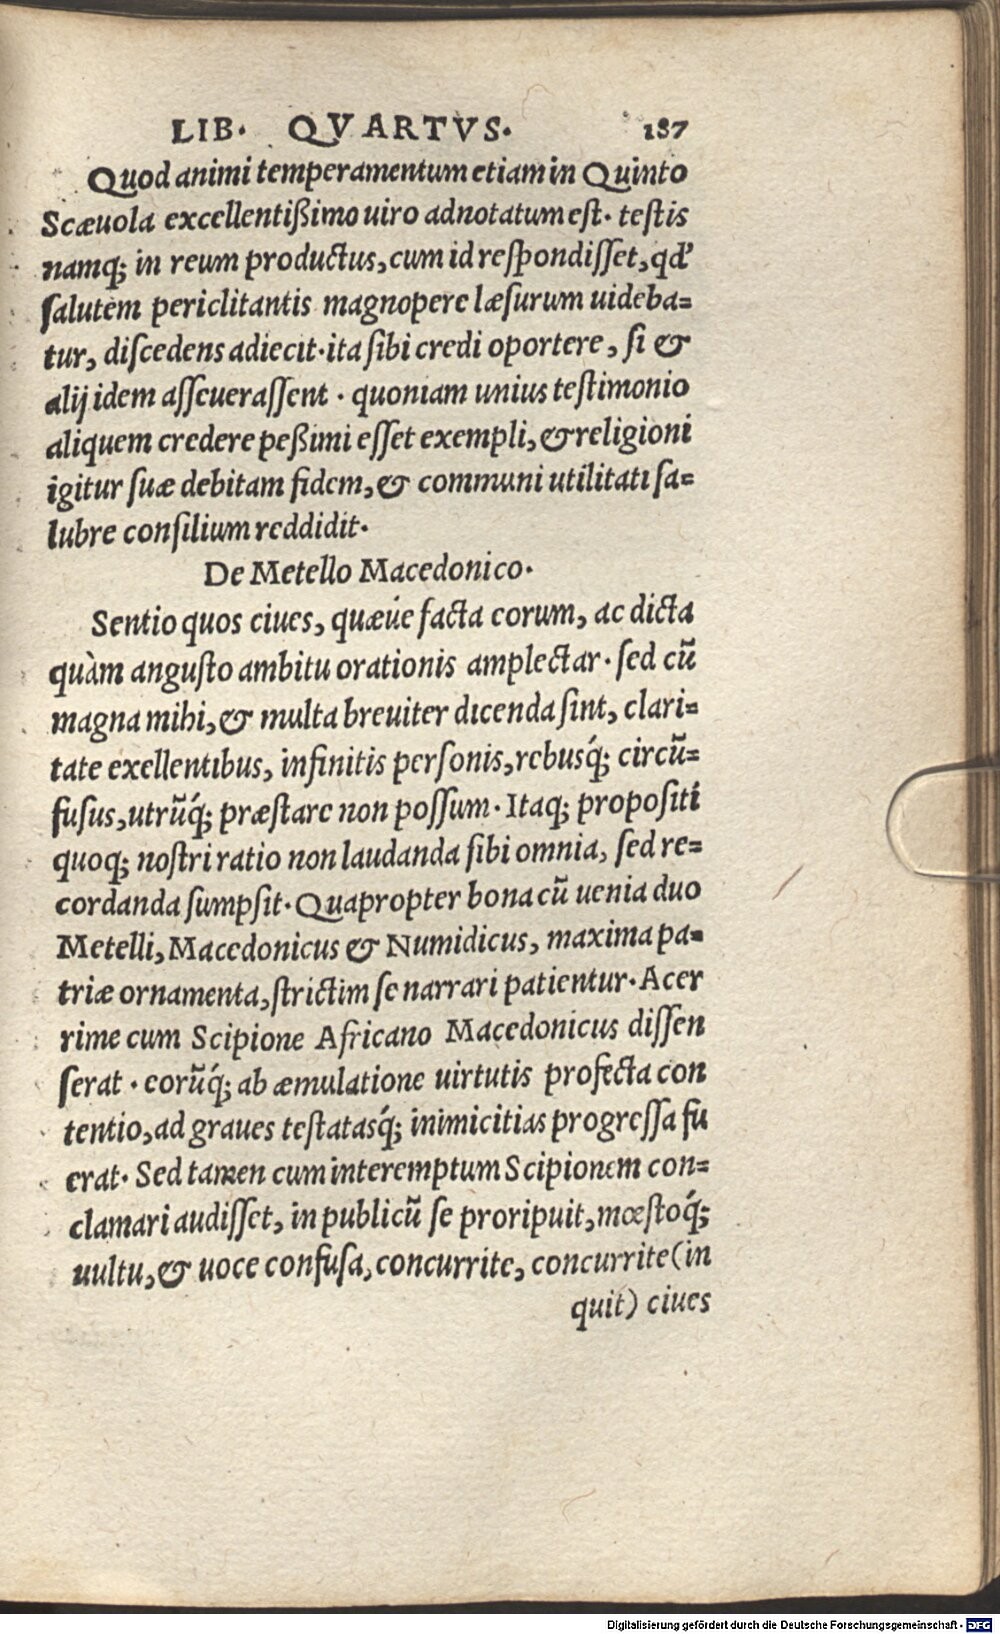 LIB. QVARTVS. 187
Quod animi temperamentum etiam in Quinto
Scæuola excellentißimo uiro adnotatum est. testis
namq; in reum productus, cum id respondisset, qd'
salutem periclitantis magnopere læsurum uideba=
tur, discedens adiecit. ita sibi credi oportere, si &
alij idem asseuerassent. quoniam unius testimonio
aliquem credere peßimi esset exempli, & religioni
igitur suæ debitam fidem, & communi utilitati sa=
lubre consilium reddidit.
De Metello Macedonico.
Sentio quos ciues, quæúe facta eorum, ac dicta
quàm angusto ambitu orationis amplectar. sed cũ
magna mihi, & multa breuiter dicenda sint, clari=
tate exellentibus, infinitis personis, rebusq́; circũ=
fusus, utrũq́; præstare non possum. Itaq; propositi
quoq; nostri ratio non laudanda sibi omnia, sed re=
cordanda sumpsit. Quapropter bona cũ uenia duo
Metelli, Macedonicus & Numidicus, maxima pa=
triæ ornamenta, strictim se narrari patientur. Acer
rime cum Scipione Africano Macedonicus dissen
serat. eorũq́; ab æmulatione uirtutis profecta con
tentio, ad graues testatasq́; inimicitias progressa fu
erat. Sed tamen cum interemptum Scipionem con=
clamari audisset, in publicũ se proripuit, mœstoq́;
uultu, & uoce confusa, concurrite, concurrite (in
quit) ciues
Digitalisierung gefördert durch die Deutsche Forschungsgemeinschaft - DFG